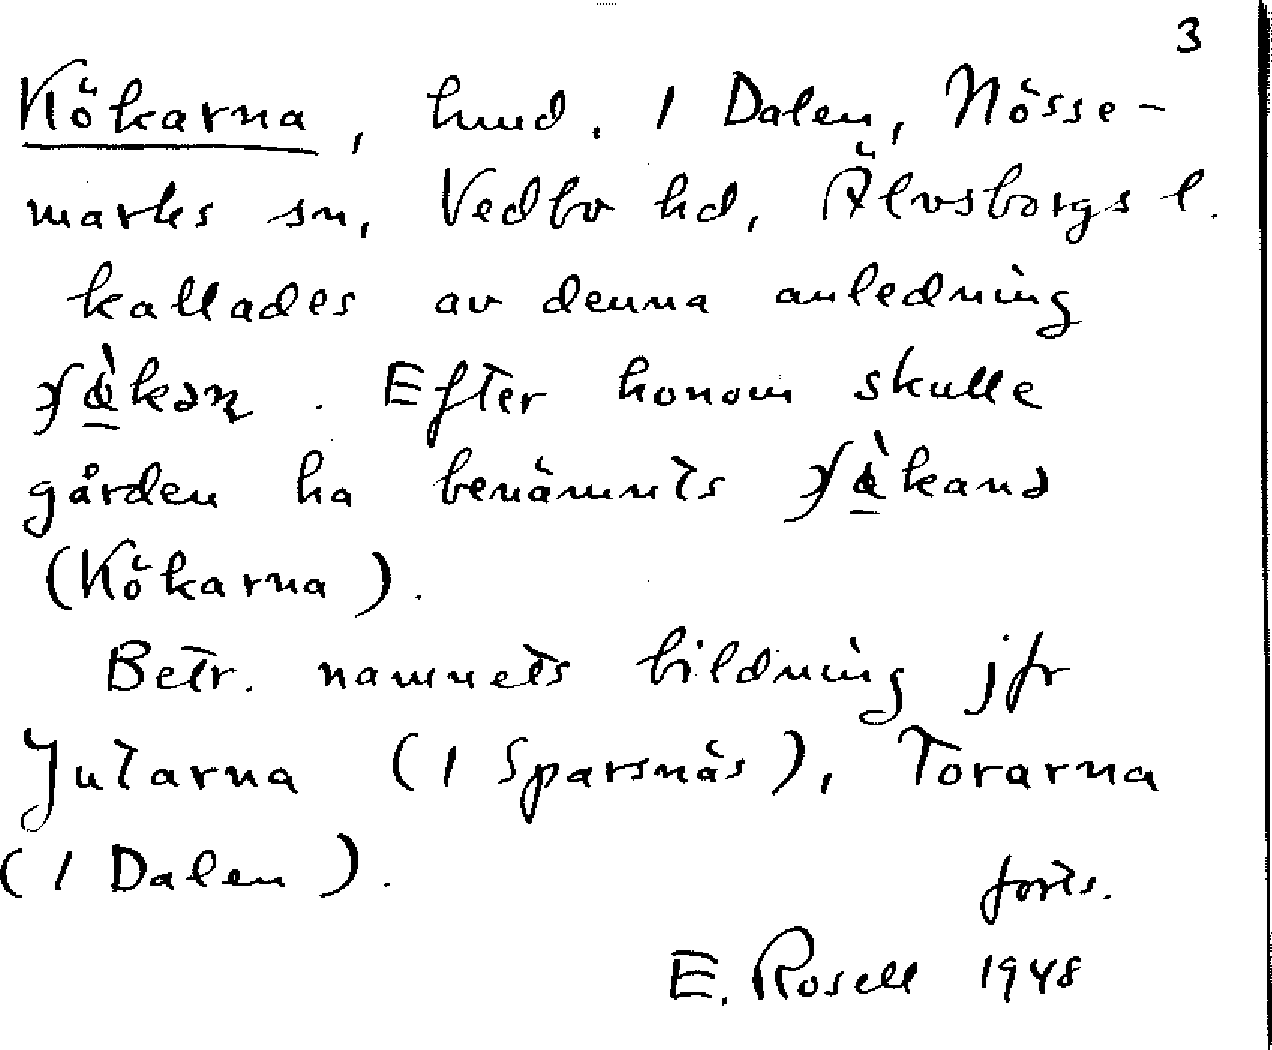 3
Kökarna, hmd. 1 Dalen, Nösse-
marks sn, Vedbo hd, Älvsborgs l.
kallades av denna anledning
. Efter honom skulle
gården ha benämnts
(Kökarna).
Betr. namnets bildning jfr
Jutarna (1 Sparsnäs), Torarna
(1 Dalen).
forts.
E. Rosell 1948